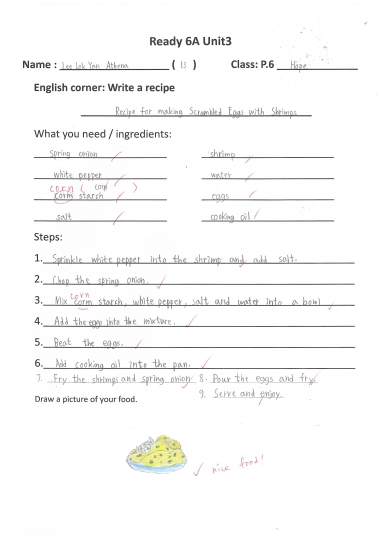 Ready 6A Unit3
Name : Lee Lok Yan Athena ( 13 ) Class: P.6 Hope
English corner: Write a recipe
Recipe for making Scrambled Eggs with Shrimps
What you need / ingredients:
spring onion shrimp
white pepper water
corn ( corn )
corm starsh eggs
salt cooking oil
Steps:
1. Sprinkle white pepper into the shrimp and add salt.
2. Chop the spring onion.
corn
3. Mix corm starsh, white pepper, salt and water into a bowl
4. Add the egg into the mixture.
5. Beat the eggs.
6. Add cooking oil into the pan.
7. Fry the shrimps and spring onion 8. Pour the eggs and fry
9. Serve and enjoy.
Draw a picture of your food.
nice food!